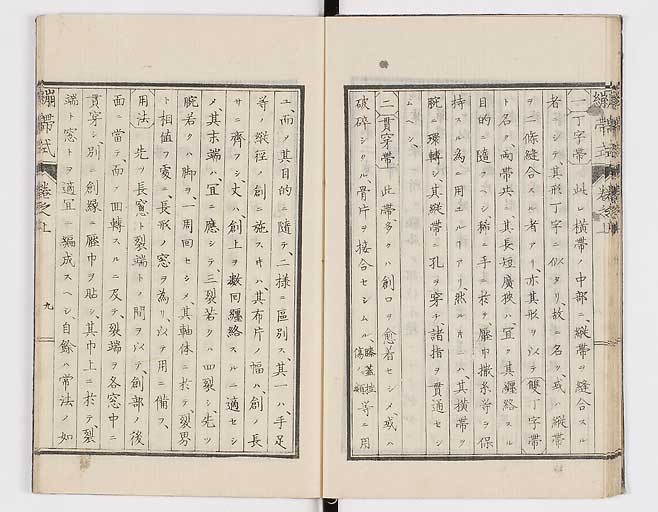 繃帶式 卷之上
一丁字帶 此レ横帶ノ中部ニ、縱帶ヲ縫合スル
者ニシテ其形丁字ニ似タリ、故ニ名ク、或ハ縱帶
ヲ二條縫合スル者アリ、亦其形ヲ以テ雙丁字帶
ト名ク、兩帶共ニ其長短廣狹ハ宜ク其纏絡スル
目的ニ隨フヘシ、稀ニ手ニ於テ壓巾撒糸等ヲ保
持スル為ニ用ユルヿアリ、然ルキニハ、其横帶ヲ
腕ニ環轉シ、其縱帶ニ孔ヲ穿チ、諸指ヲ貫通セシ
ムヘシ、
二貫穿帶 此帶、多クハ創口ヲ愈着セシメ、或ハ
破碎シタル、骨片ヲ接合セシムル、膝蓋 等ニ用
ユ、而メ其目的ニ隨テ、二様ニ區別ス、其一ハ手足
等ノ縱徑ノ創ニ施スキハ其布片ノ幅ハ、創ノ長
サニ齊フシ、丈ハ、創上ヲ數回纏絡スルニ適セシ
メ、其末端ハ、宜ニ應シテ、三裂若クハ四裂シ、先ツ
腕若クハ脚ヲ、一周回セシメ、其軸体ニ於テ、裂界
ト相値フ處ニ、長形ノ窓ヲ為リ、以テ用ニ備フ、
用法 先ツ長窓ト裂端トノ間ヲ以テ、創部ノ後
面ニ當テ、而メ回轉スルニ及テ、裂端ヲ各窓中ニ
貫穿シ、別ニ創緣ニ壓巾ヲ貼シ、其巾上ニ於テ、裂
端ト窓トヲ適宜ニ編成スヘシ、自餘ハ常法ノ如
繃帶式 卷之上 九